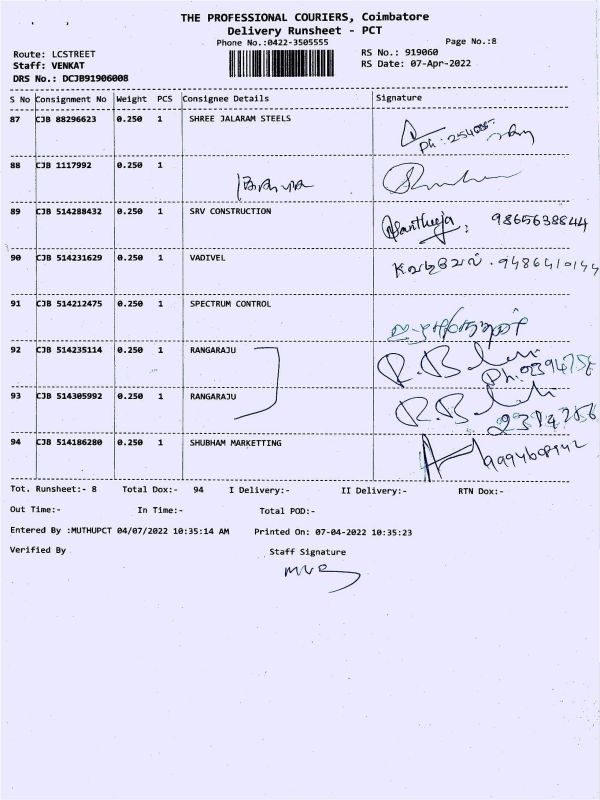 THE PROFESSIONAL COURIERS, Coimbatore
Delivery Runsheet - PCT
Phone No.:0422-3505555
Page No.:8
Route: LCSTREET
RS No.: 919060
Staff: VENKAT
RS Date: 07-Apr-2022
DRS No.: DCJB91906008
S No Consignment No Weight PCS Consignee Details Signature
87 CJB 88296623 0.250 1 SHREE JALARAM STEELS
Ph:
88 CJB 1117992 0.250 1
89 CJB 514288432 0.250 1 SRV CONSTRUCTION 9865638844
90 CJB 514231629 0.250 1 VADIVEL 9486410144
91 CJB 514212475 0.250 1 SPECTRUM CONTROL
92 CJB 514235114 0.250 1 RANGARAJU
Ph:
93 CJB 514305992 0.250 1 RANGARAJU
94 CJB 514186280 0.250 1 SHUBHAM MARKETTING
Tot. Runsheet:- 8 Total Dox:- 94 I Delivery:- II Delivery:- RTN Dox:-
Out Time:- In Time:- Total POD:-
Entered By :MUTHUPCT 04/07/2022 10:35:14 AM Printed On: 07-04-2022 10:35:23
Verified By Staff Signature